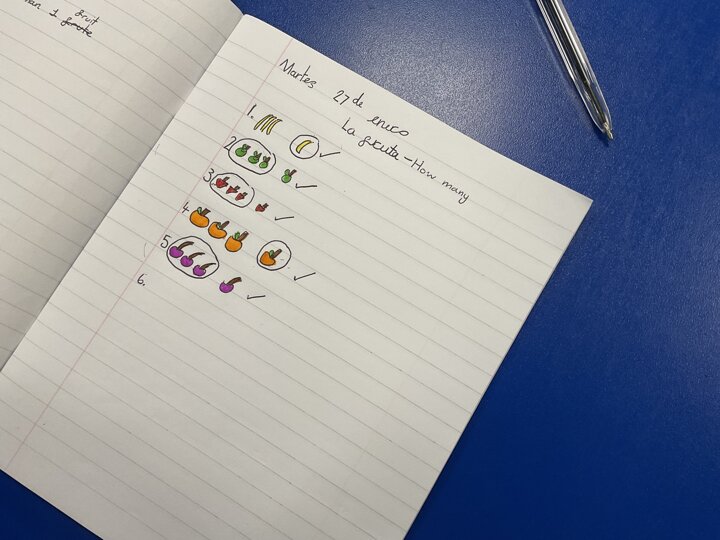 fruit
1 fruite
Martes 27 de enero
La fruta - How many
1.
2
3
4
5
6.